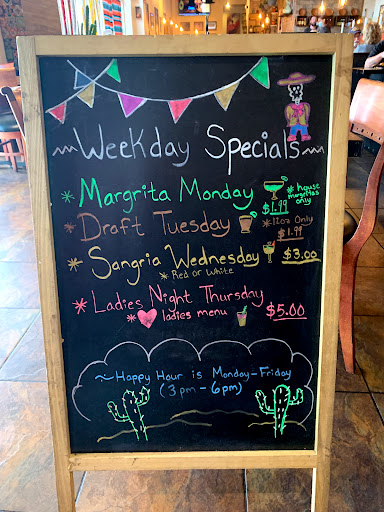 Weekday Specials
Margrita Monday $1.99 * house margritas only
* Draft Tuesday * 12oz Only $1.99
* Sangria Wednesday $3.00
* Red or White
* Ladies Night Thursday
* ladies menu $5.00
~ Happy Hour is Monday - Friday
(3pm - 6pm)